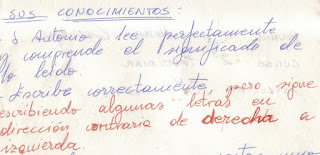 SUS CONOCIMIENTOS:
Antonio lee perfectamente
comprende el significado de
lo leído.
Escribe correctamente, pero sigue
escribiendo algunas letras en
dirección contraria de derecha a
izquierda.